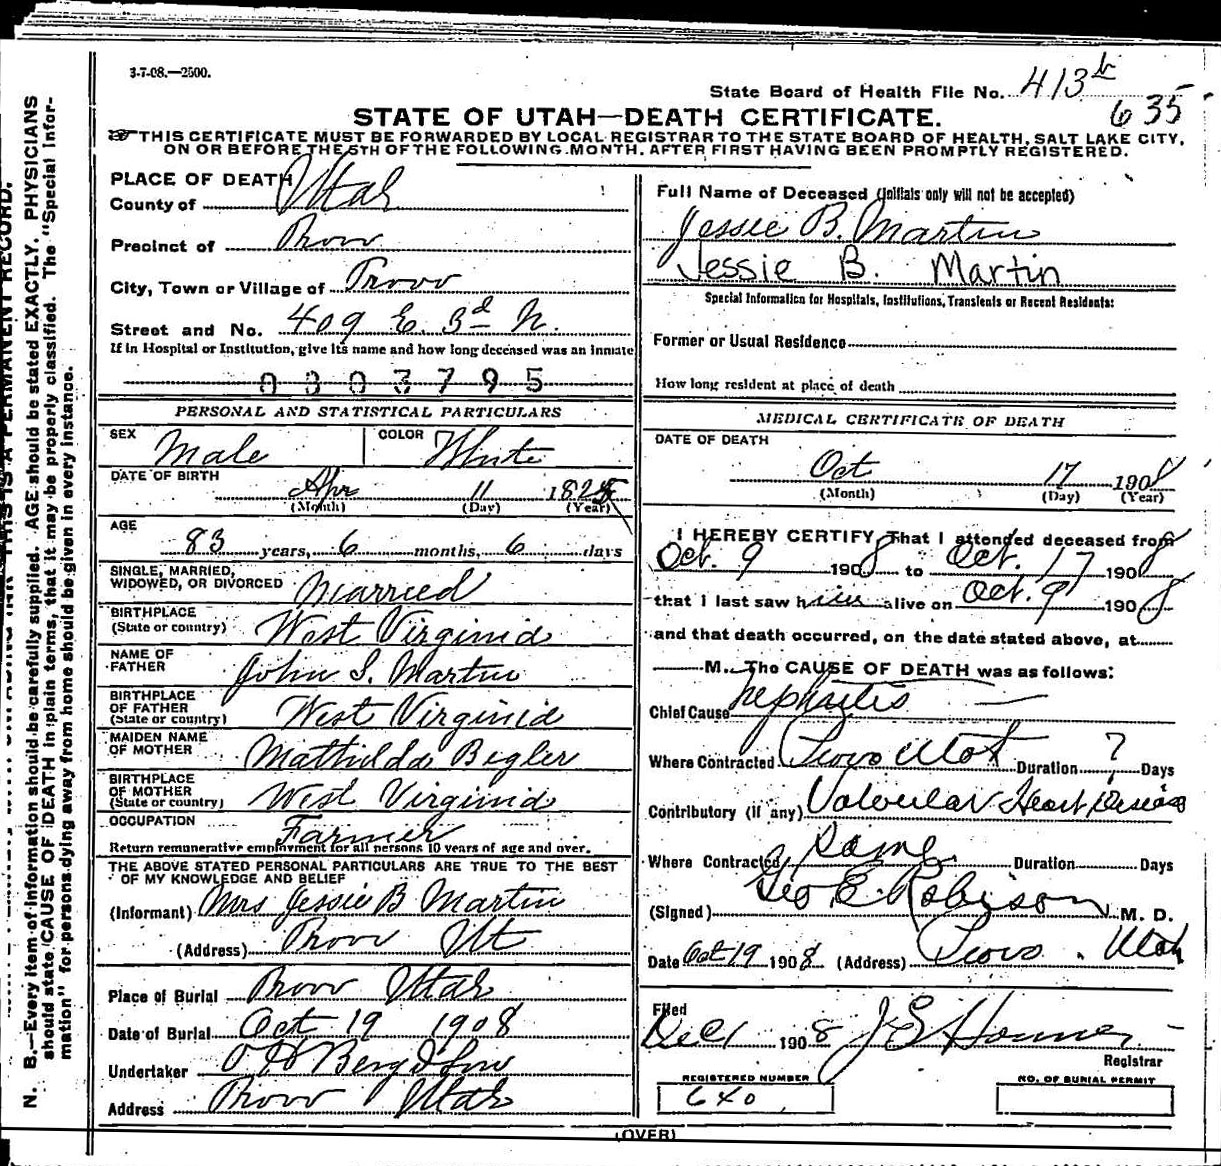 3-7-08.—2500.
State Board of Health File No. 413 b
635
STATE OF UTAH—DEATH CERTIFICATE.
THIS CERTIFICATE MUST BE FORWARDED BY LOCAL REGISTRAR TO THE STATE BOARD OF HEALTH, SALT LAKE CITY,
ON OR BEFORE THE 5TH OF THE FOLLOWING MONTH, AFTER FIRST HAVING BEEN PROMPTLY REGISTERED.
PLACE OF DEATH
County of Utah
Precinct of Provo
City, Town or Village of Provo
Street and No. 409 E. 3d N.
If in Hospital or Institution, give its name and how long deceased was an inmate
0303795
PERSONAL AND STATISTICAL PARTICULARS
SEX Male COLOR White
DATE OF BIRTH Apr 11 1825
(Month) (Day) (Year)
AGE
83 years, 6 months, 6 days
SINGLE, MARRIED,
WIDOWED, OR DIVORCED Married
BIRTHPLACE
(State or country) West Virginia
NAME OF
FATHER John S. Martin
BIRTHPLACE
OF FATHER
(State or country) West Virginia
MAIDEN NAME
OF MOTHER Mathilda Bigler
BIRTHPLACE
OF MOTHER
(State or country) West Virginia
OCCUPATION Farmer
Return remunerative employment for all persons 10 years of age and over.
THE ABOVE STATED PERSONAL PARTICULARS ARE TRUE TO THE BEST
OF MY KNOWLEDGE AND BELIEF
(Informant) Mrs Jessie B Martin
(Address) Provo Ut
Place of Burial Provo Utah
Date of Burial Oct 19 1908
Undertaker O H Berg & Son
Address Provo Utah
Full Name of Deceased (Initials only will not be accepted)
Jessie B. Martin
Jessie B. Martin
Special Information for Hospitals, Institutions, Transients or Recent Residents:
Former or Usual Residence
How long resident at place of death
MEDICAL CERTIFICATE OF DEATH
DATE OF DEATH
Oct 17 1908
(Month) (Day) (Year)
I HEREBY CERTIFY, That I attended deceased from
Oct. 9 1908 to Oct. 17 1908
that I last saw him alive on Oct. 9 1908
and that death occurred, on the date stated above, at
M. The CAUSE OF DEATH was as follows:
Chief Cause Nephritis
Where Contracted Provo Utah Duration ? Days
Contributory (if any) Valvular Heart Disease
Where Contracted Same Duration Days
(Signed) Geo E. Robison M. D.
Date Oct 19 1908 (Address) Provo. Utah
Filed
Dec 1 1908
Registrar
REGISTERED NUMBER
640
NO. OF BURIAL PERMIT
(OVER)
N. B.—Every item of information should be carefully supplied. AGE should be stated EXACTLY. PHYSICIANS
should state CAUSE OF DEATH in plain terms, that it may be properly classified. The "Special Infor-
mation" for persons dying away from home should be given in every instance.